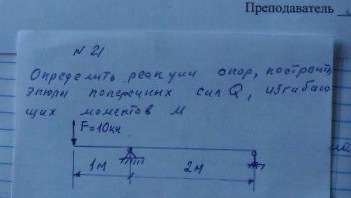 Преподаватель
N 21
Определить реакции опор, построить
эпюры поперечных сил Q, изгибаю
щих моментов M
F=10кн
1м 2м